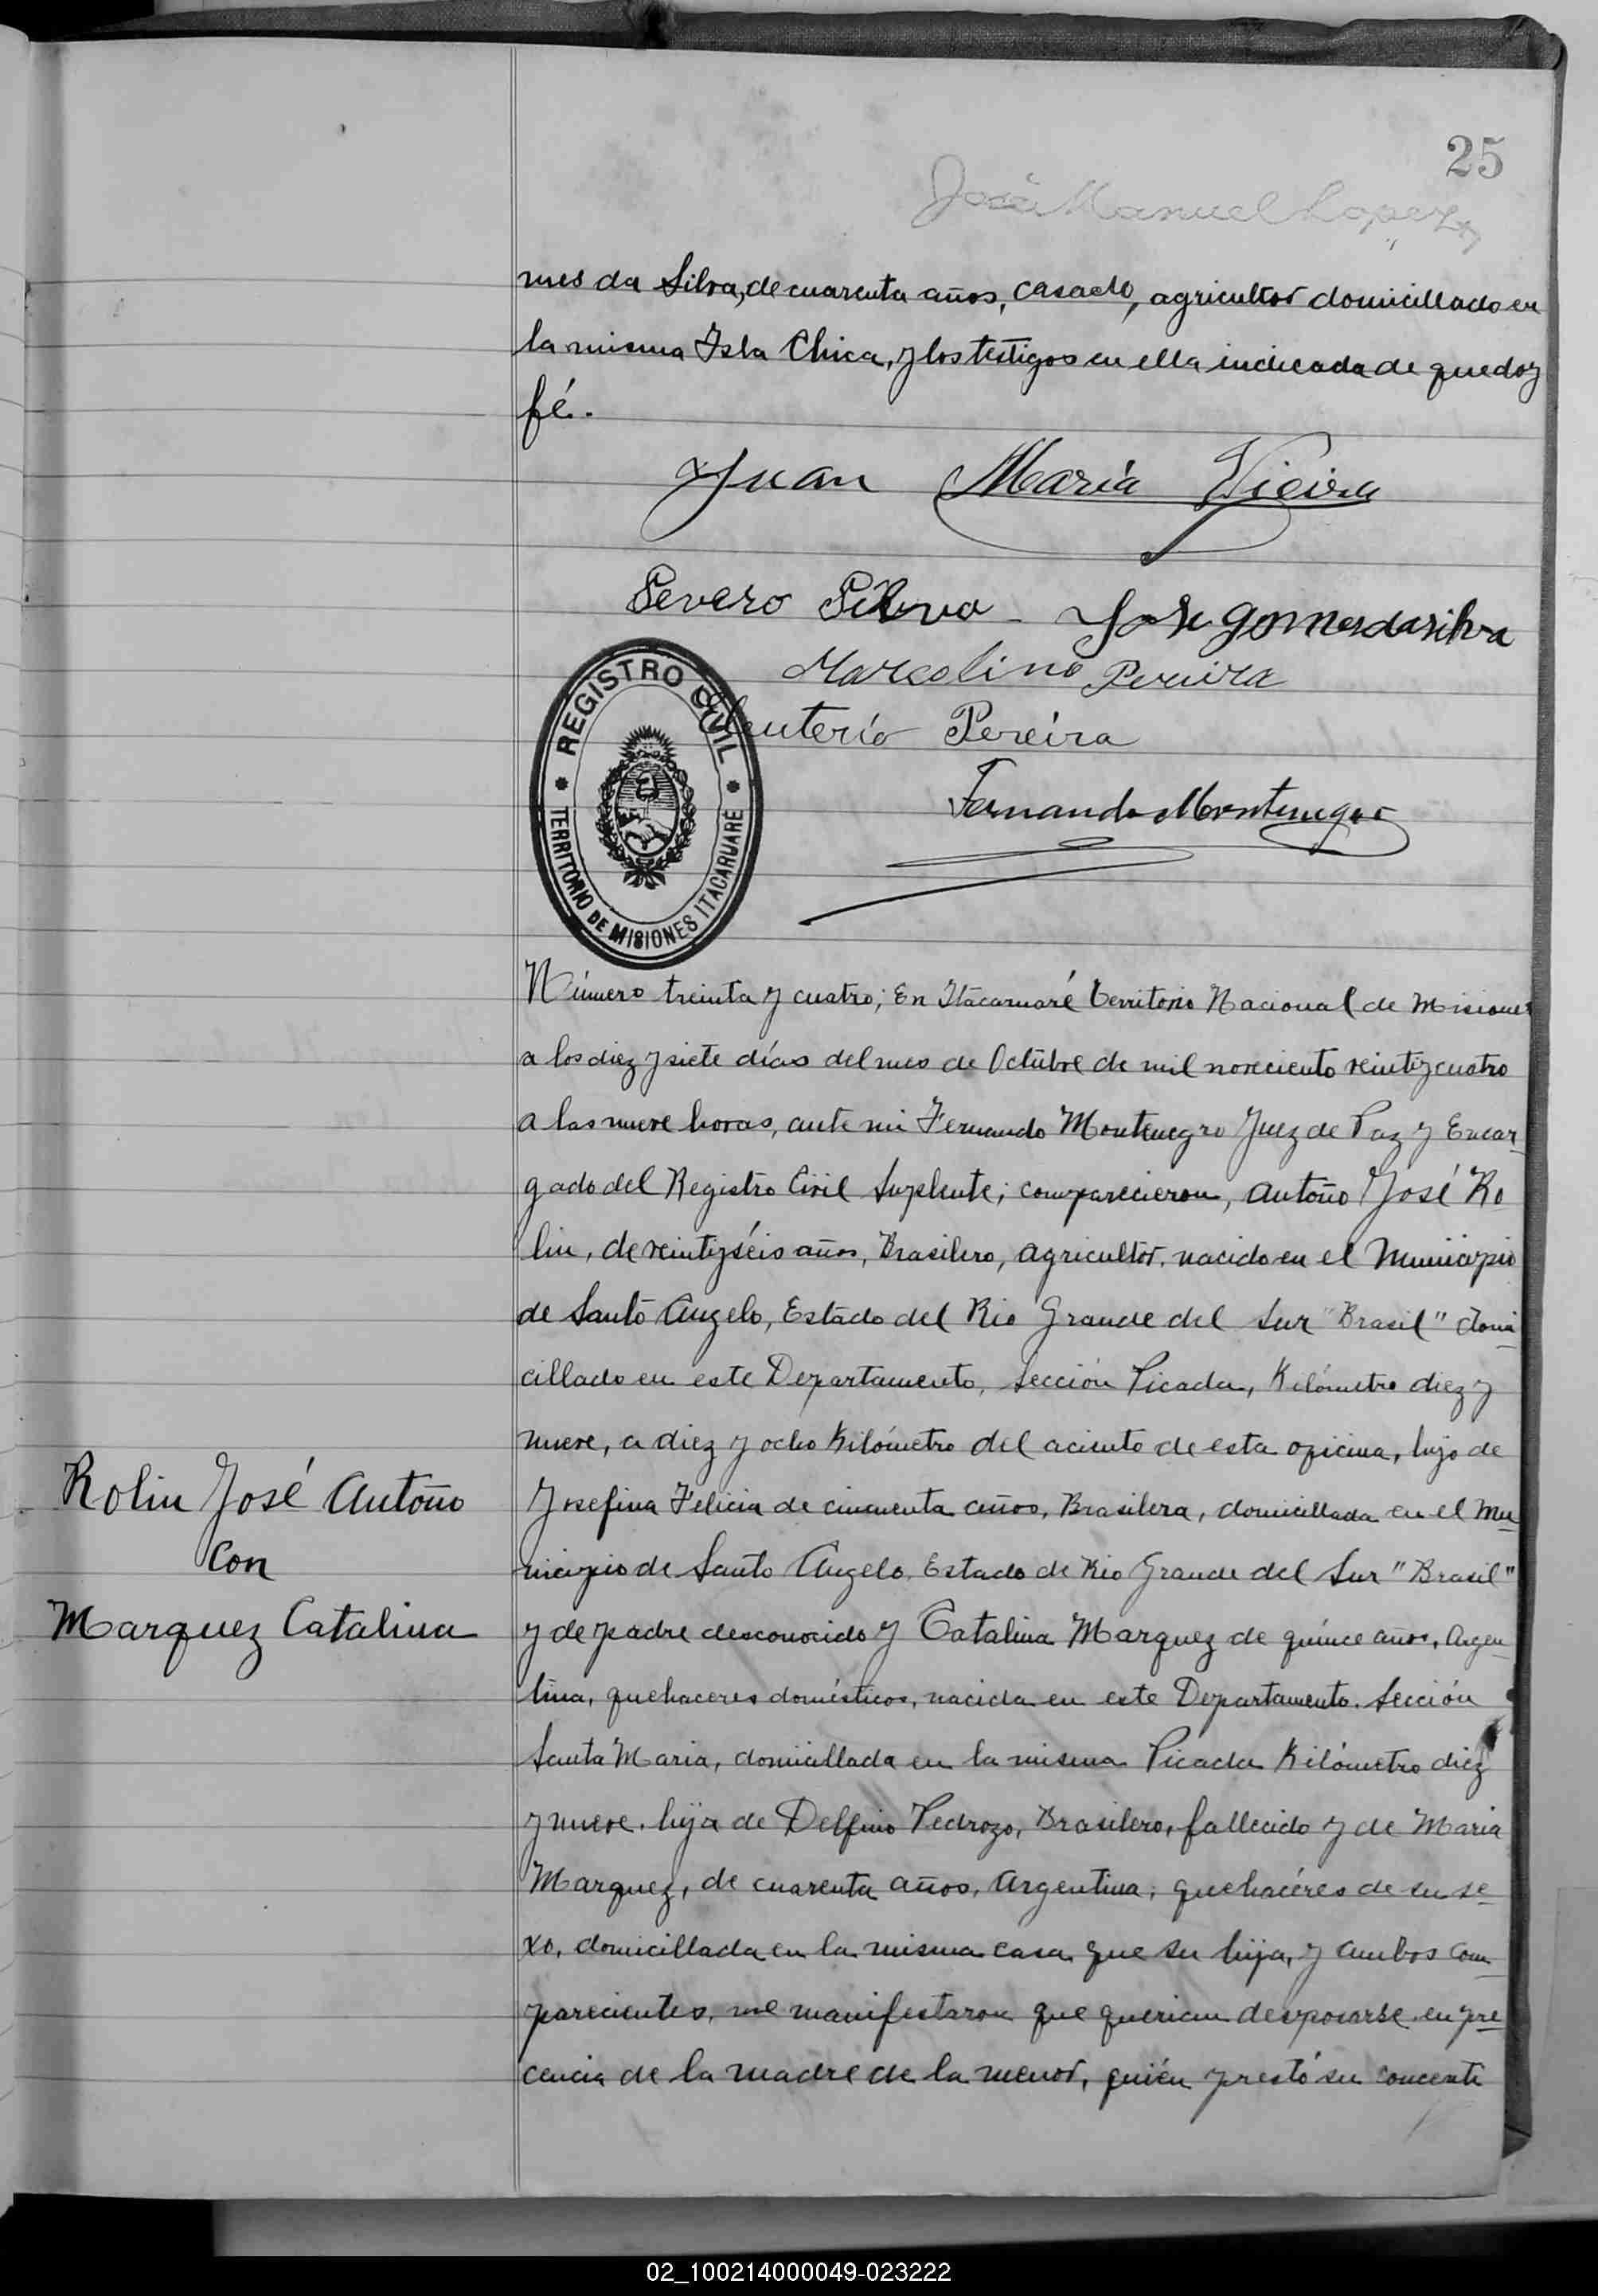 25
José Manuel Lopez
mes da Silva, de cuarenta años, casado, agricultor domicillado en
la misma Isla Chica, y los testigos en ella indicada de que doy
fé.
Juan María Vieira
Severo Silva - José gomes da silva
Marcolino Pereira
Eleuterio Pereira
Fernando Montenegro
REGISTRO CIVIL
TERRITORIO DE MISIONES ITACARUARÉ
Número treinta y cuatro; En Itacaruaré territorio Nacional de Misiones
a los diez y siete días del mes de Octubre de mil noveciento veintiycuatro
a las nueve horas, ante mi Fernando Montenegro Juez de Paz y Encar-
gado del Registro Civil Suplente; comparecieron, Antoño José Ro
lin, de veintiyséis años, Brasilero, agricultor, nacido en el Municipio
de Santo Angelo, Estado del Rio Grande del Sur "Brasil" domi-
cillado en este Departamento, Sección Picada, Kilómetro diez y
nueve, a diez y ocho Kilómetro del aciento de esta oficina, hijo de
Josefina Felicia de cincuenta años, Brasilera, domicillada en el Mu-
nicipio de Santo Angelo, Estado de Rio Grande del Sur "Brasil"
Rolin José Antoño
con
Marquez Catalina
y de padre desconocido y Catalina Marquez de quince años, Argen-
tina, quehaceres domésticos, nacida en este Departamento. Sección
Santa Maria, domicillada en la misma Picada Kilómetro diez
y nueve, hija de Delfino Pedrozo, Brasilero, fallecido y de Maria
Marquez, de cuarenta años, Argentina, quehacéres de su se-
xo, domicillada en la misma casa que su hija, y ambos com-
parecientes, me manifestaron que querian desposarse en pre-
cencia de la madre de la menor, quién prestó su concenti
02_100214000049-023222